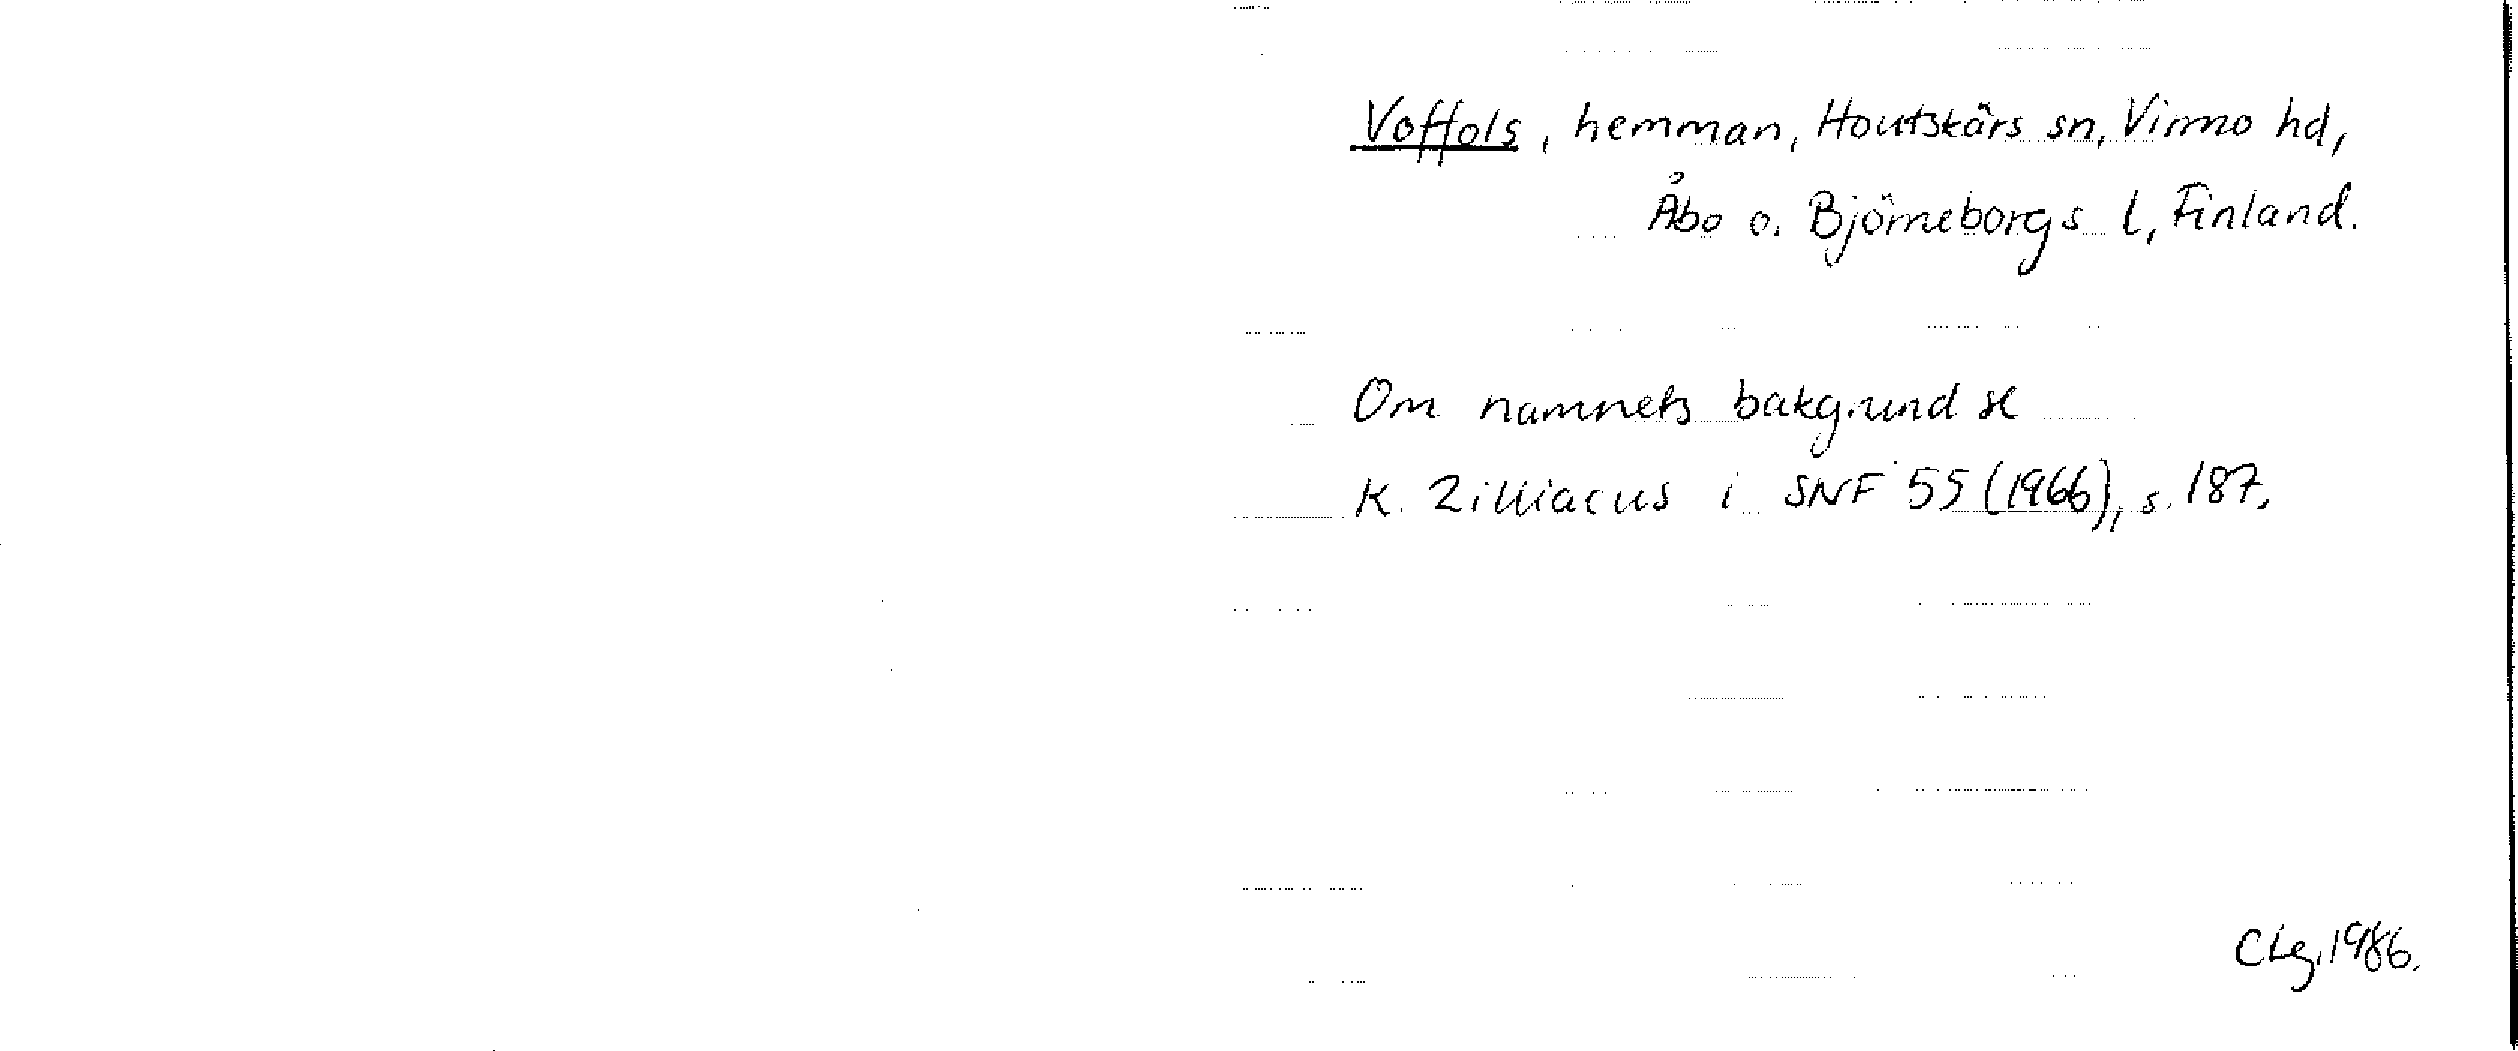 Voffols, hemman, Houtskärs sn, Virmo hd,
Åbo o. Björneborgs l, Finland.
Om namnets bakgrund se
K. Zilliacus i SNF 55 (1966), s. 187.
CLg, 1986.